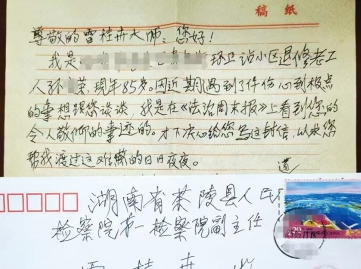 稿纸
尊敬的雷桂卉大师：您好！
我是 环卫站小区退修老工
人 荣，现年85岁。因近期遇到了件伤心到极点
的事想跟您谈谈，我是在《法治周末报》上看到您的
令人敬仰的事迹的。才下决心给您写这封信，以求您
帮我渡过这难熬的日日夜夜。
湖南省茶陵县人民
检察院第一检察院副主任